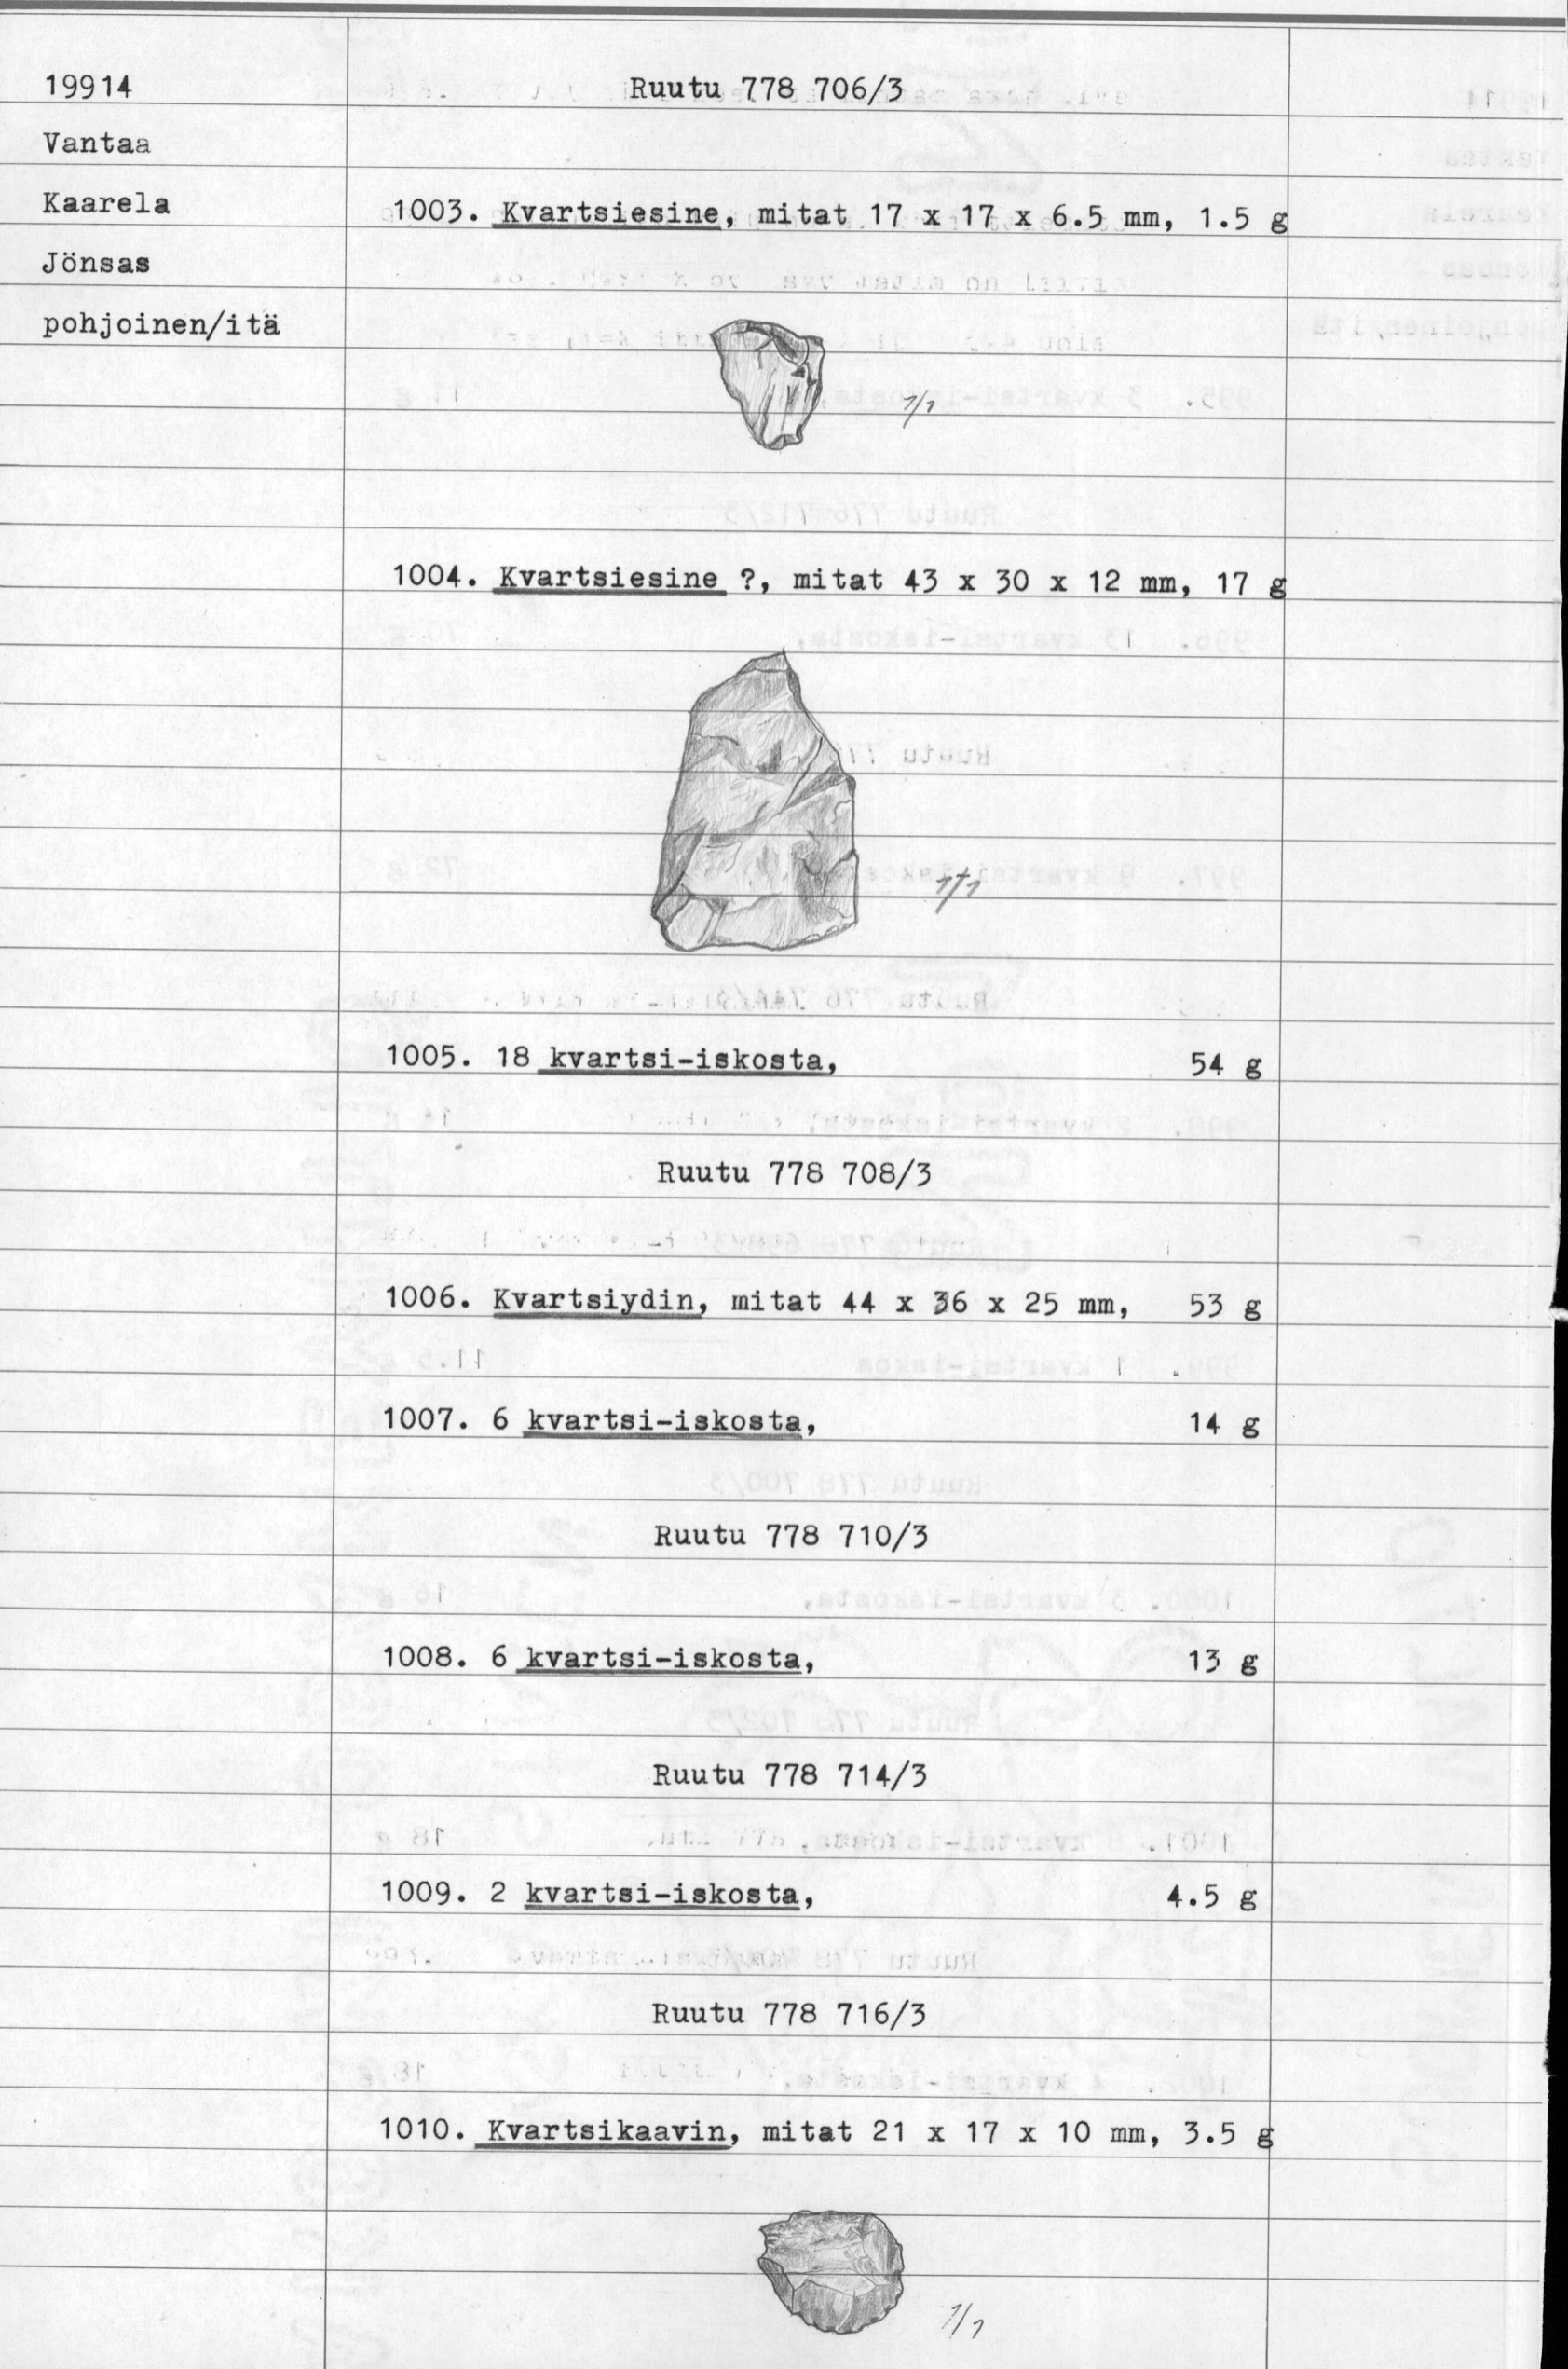 19914
Vantaa
Kaarela
Jönsas
pohjoinen/itä
Ruutu 778 706/3
1003. Kvartsiesine, mitat 17 x 17 x 6.5 mm, 1.5 g
1/1
1004. Kvartsiesine ?, mitat 43 x 30 x 12 mm, 17 g
1/1
1005. 18 kvartsi-iskosta, 54 g
Ruutu 778 708/3
1006. Kvartsiydin, mitat 44 x 36 x 25 mm, 53 g
1007. 6 kvartsi-iskosta, 14 g
Ruutu 778 710/3
1008. 6 kvartsi-iskosta, 13 g
Ruutu 778 714/3
1009. 2 kvartsi-iskosta, 4.5 g
Ruutu 778 716/3
1010. Kvartsikaavin, mitat 21 x 17 x 10 mm, 3.5 g
1/1